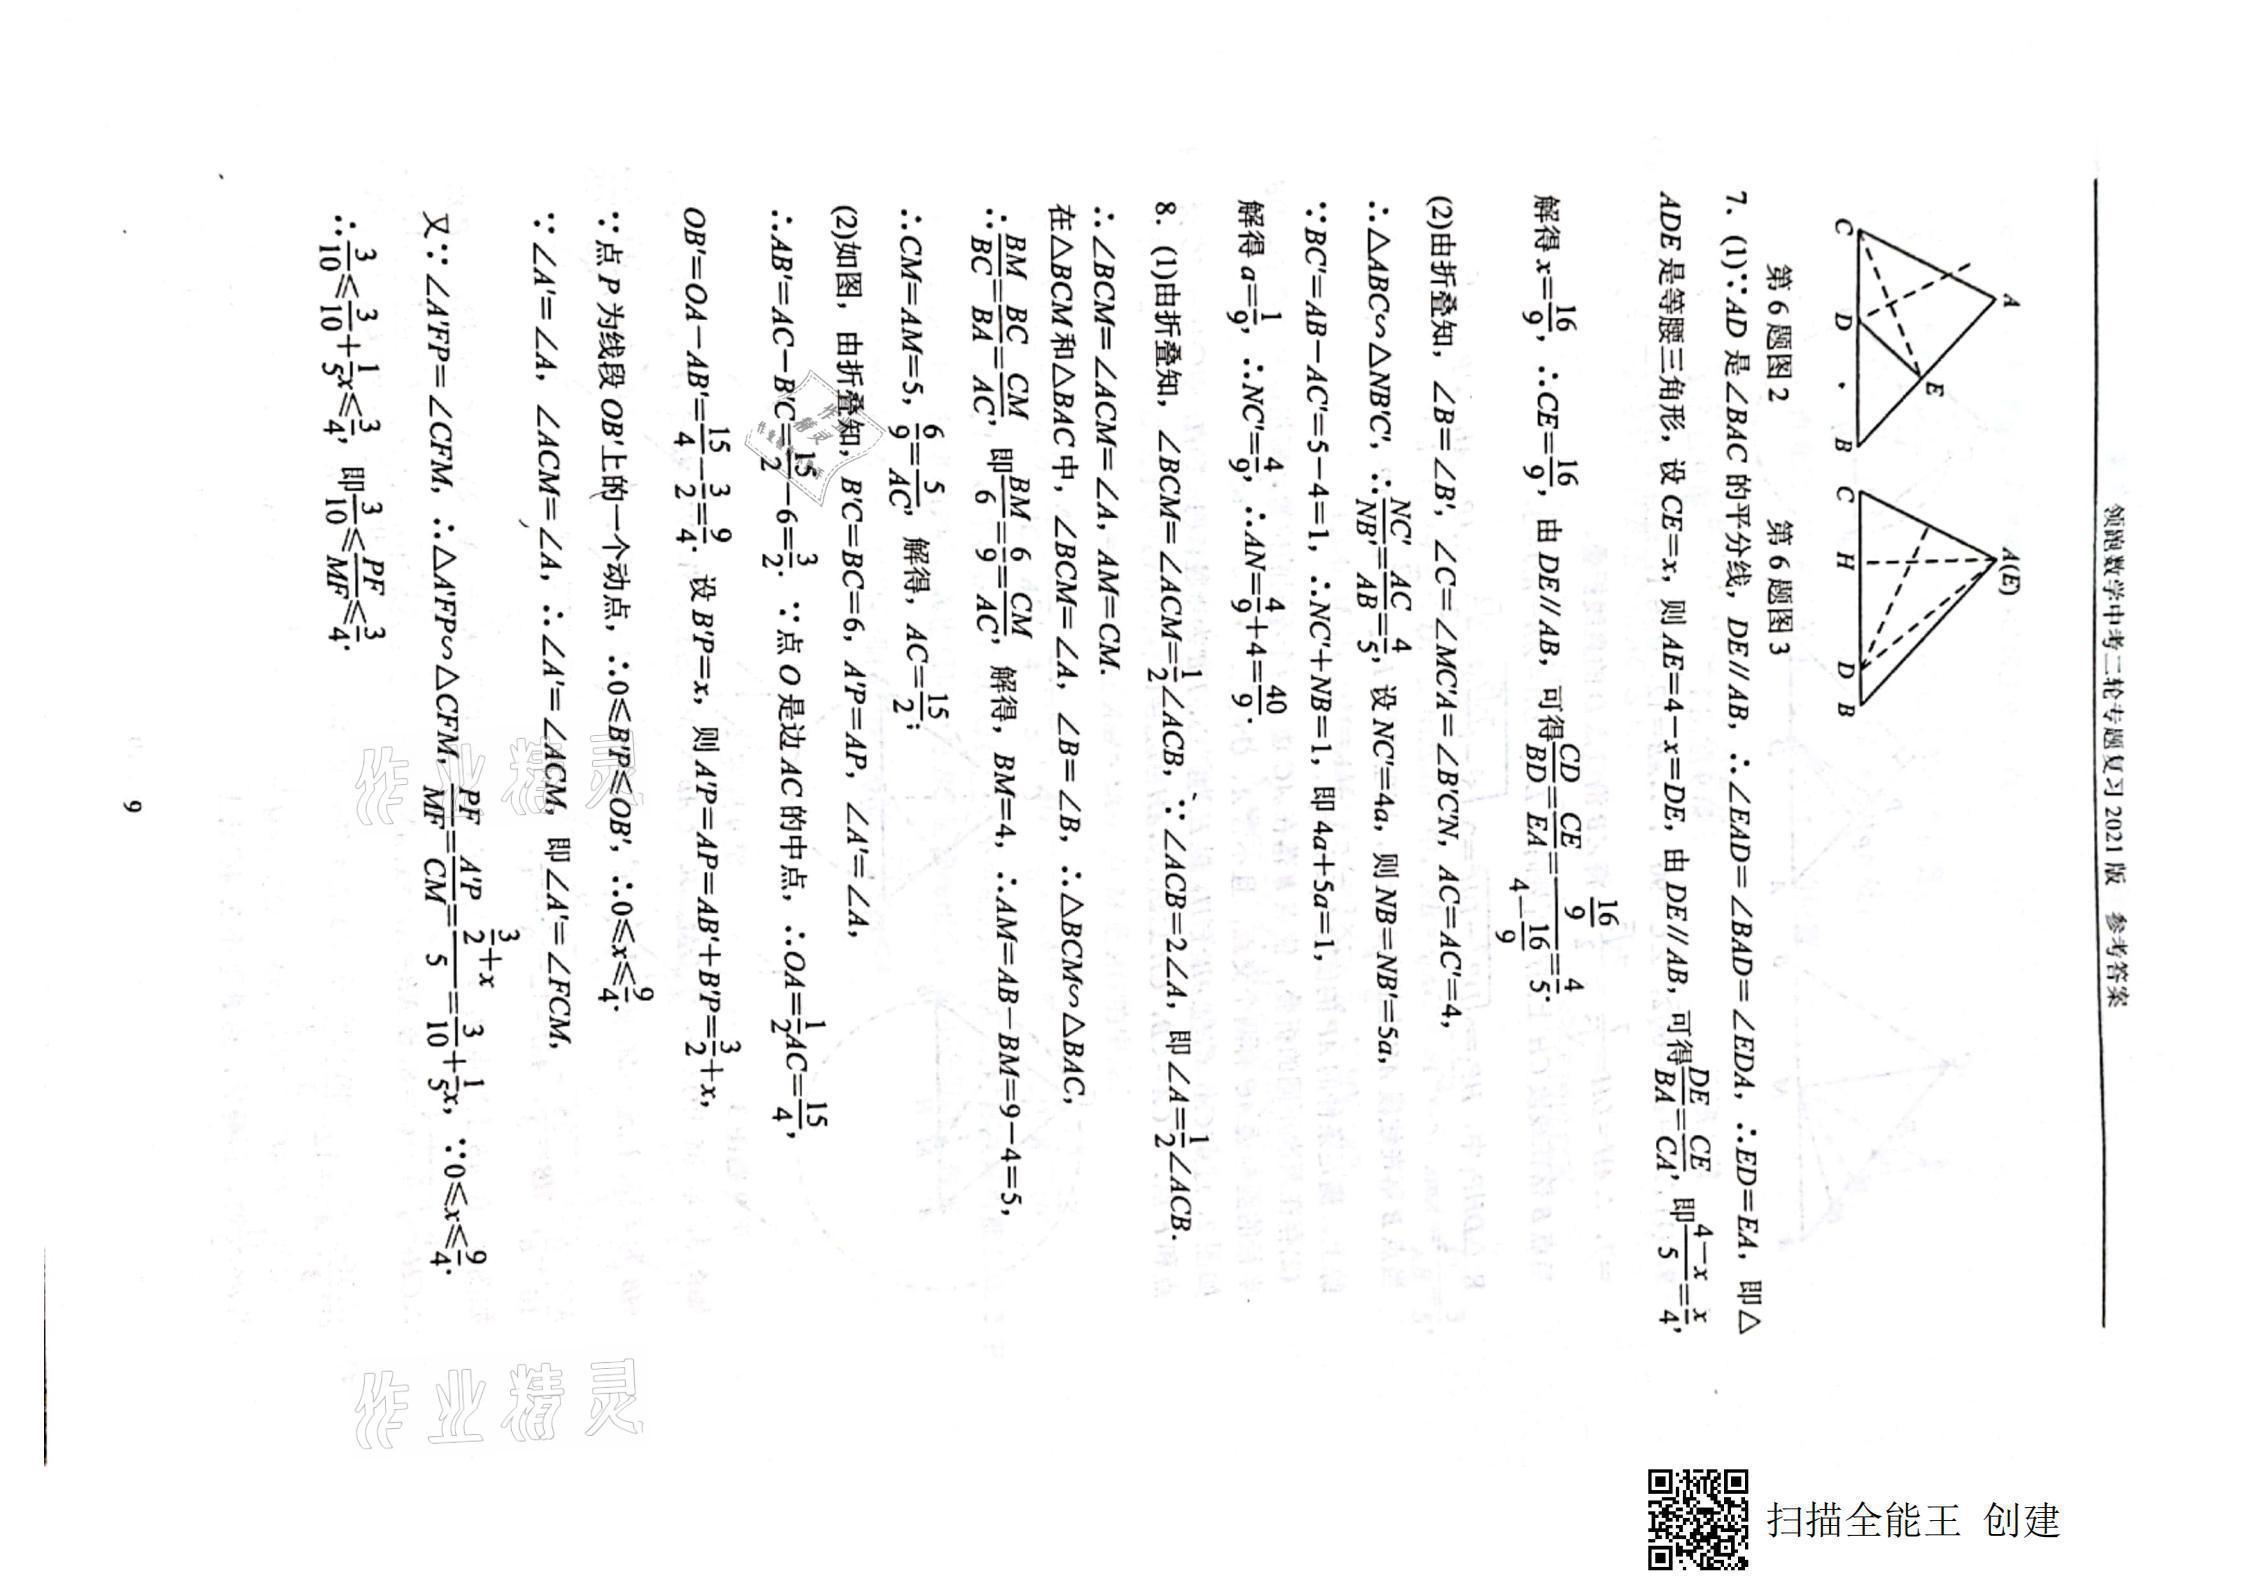 领跑数学中考二轮专题复习 2021 版 参考答案
A
E
C D B
A(E)
C H D B
第 6 题图 2 第 6 题图 3
7. (1)∵AD 是∠BAC 的平分线，DE//AB，∴∠EAD=∠BAD=∠EDA，∴ED=EA，即△
ADE 是等腰三角形，设 CE=x，则 AE=4-x=DE，由 DE//AB，可得DE/BA=CE/CA，即(4-x)/5=x/4，
解得 x=16/9，∴CE=16/9，由 DE//AB，可得CD/BD=CE/EA=(16/9)/(4-16/9)=4/5.
(2)由折叠知，∠B=∠B′，∠C=∠MC′A=∠B′C′N，AC=AC′=4，
∴△ABC∽△NB′C′，∴NC′/NB′=AC/AB=4/5，设 NC′=4a，则 NB=NB′=5a，
∵BC′=AB-AC′=5-4=1，∴NC′+NB=1，即 4a+5a=1，
解得 a=1/9，∴NC′=4/9，∴AN=4/9+4=40/9.
8. (1)由折叠知，∠BCM=∠ACM=1/2∠ACB，∵∠ACB=2∠A，即∠A=1/2∠ACB.
∴∠BCM=∠ACM=∠A，AM=CM.
在△BCM 和△BAC 中，∠BCM=∠A，∠B=∠B，∴△BCM∽△BAC，
∴BM/BC=BC/BA=CM/AC，即BM/6=6/9=CM/AC，解得，BM=4，∴AM=AB-BM=9-4=5，
∴CM=AM=5，6/9=5/AC，解得，AC=15/2；
(2)如图，由折叠知，B′C=BC=6，A′P=AP，∠A′=∠A，
∴AB′=AC-B′C=15/2-6=3/2. ∵点 O 是边 AC 的中点，∴OA=1/2AC=15/4，
OB′=OA-AB′=15/4-3/2=9/4. 设 B′P=x，则 A′P=AP=AB′+B′P=3/2+x，
∵点 P 为线段 OB′上的一个动点，∴0⩽B′P⩽OB′，∴0⩽x⩽9/4.
∵∠A′=∠A，∠ACM=∠A，∴∠A′=∠ACM，即∠A′=∠FCM，
又∵∠A′FP=∠CFM，∴△A′FP∽△CFM，PF/MF=A′P/CM=(3/2+x)/5=3/10+1/5x，∵0⩽x⩽9/4.
∴3/10⩽3/10+1/5x⩽3/4，即3/10⩽PF/MF⩽3/4.
9
作业精灵
作业精灵
扫描全能王 创建